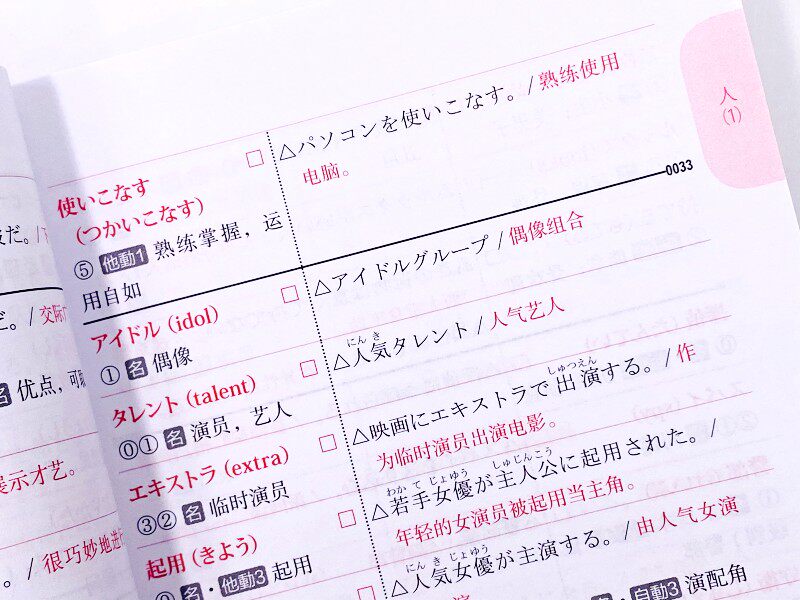 人
(1)
使いこなす
(つかいこなす)
⑤ 他動1 熟练掌握，运
用自如
△パソコンを使いこなす。/ 熟练使用
电脑。
0033
アイドル (idol)
① 名 偶像
△アイドルグループ / 偶像组合
タレント (talent)
⓪① 名 演员，艺人
にん き
△人気タレント / 人气艺人
エキストラ (extra)
③② 名 临时演员
しゅつえん
△映画にエキストラで出演する。/ 作
为临时演员出演电影。
起用 (きよう)
名・他動3 起用
わか て じょゆう しゅじんこう
△若手女優が主人公に起用された。/
年轻的女演员被起用当主角。
にん き じょゆう
△人気女優が主演する。/ 由人气女演
・自動3 演配角
だ。/
だ。/ 交际
名 优点，可
展示才艺。
。/ 很巧妙地进